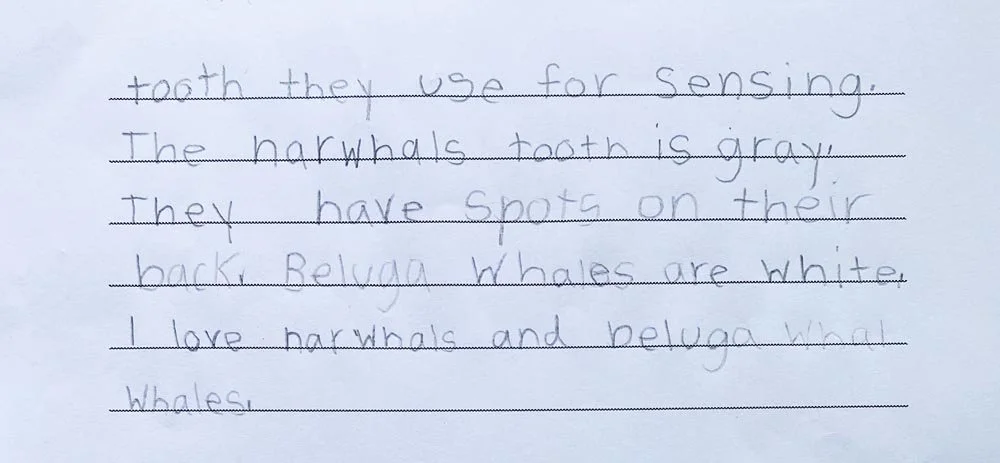 tooth they use for sensing.
The narwhals tooth is gray.
They have spots on their
back. Beluga Whales are white.
I love narwhals and beluga whal
Whales.